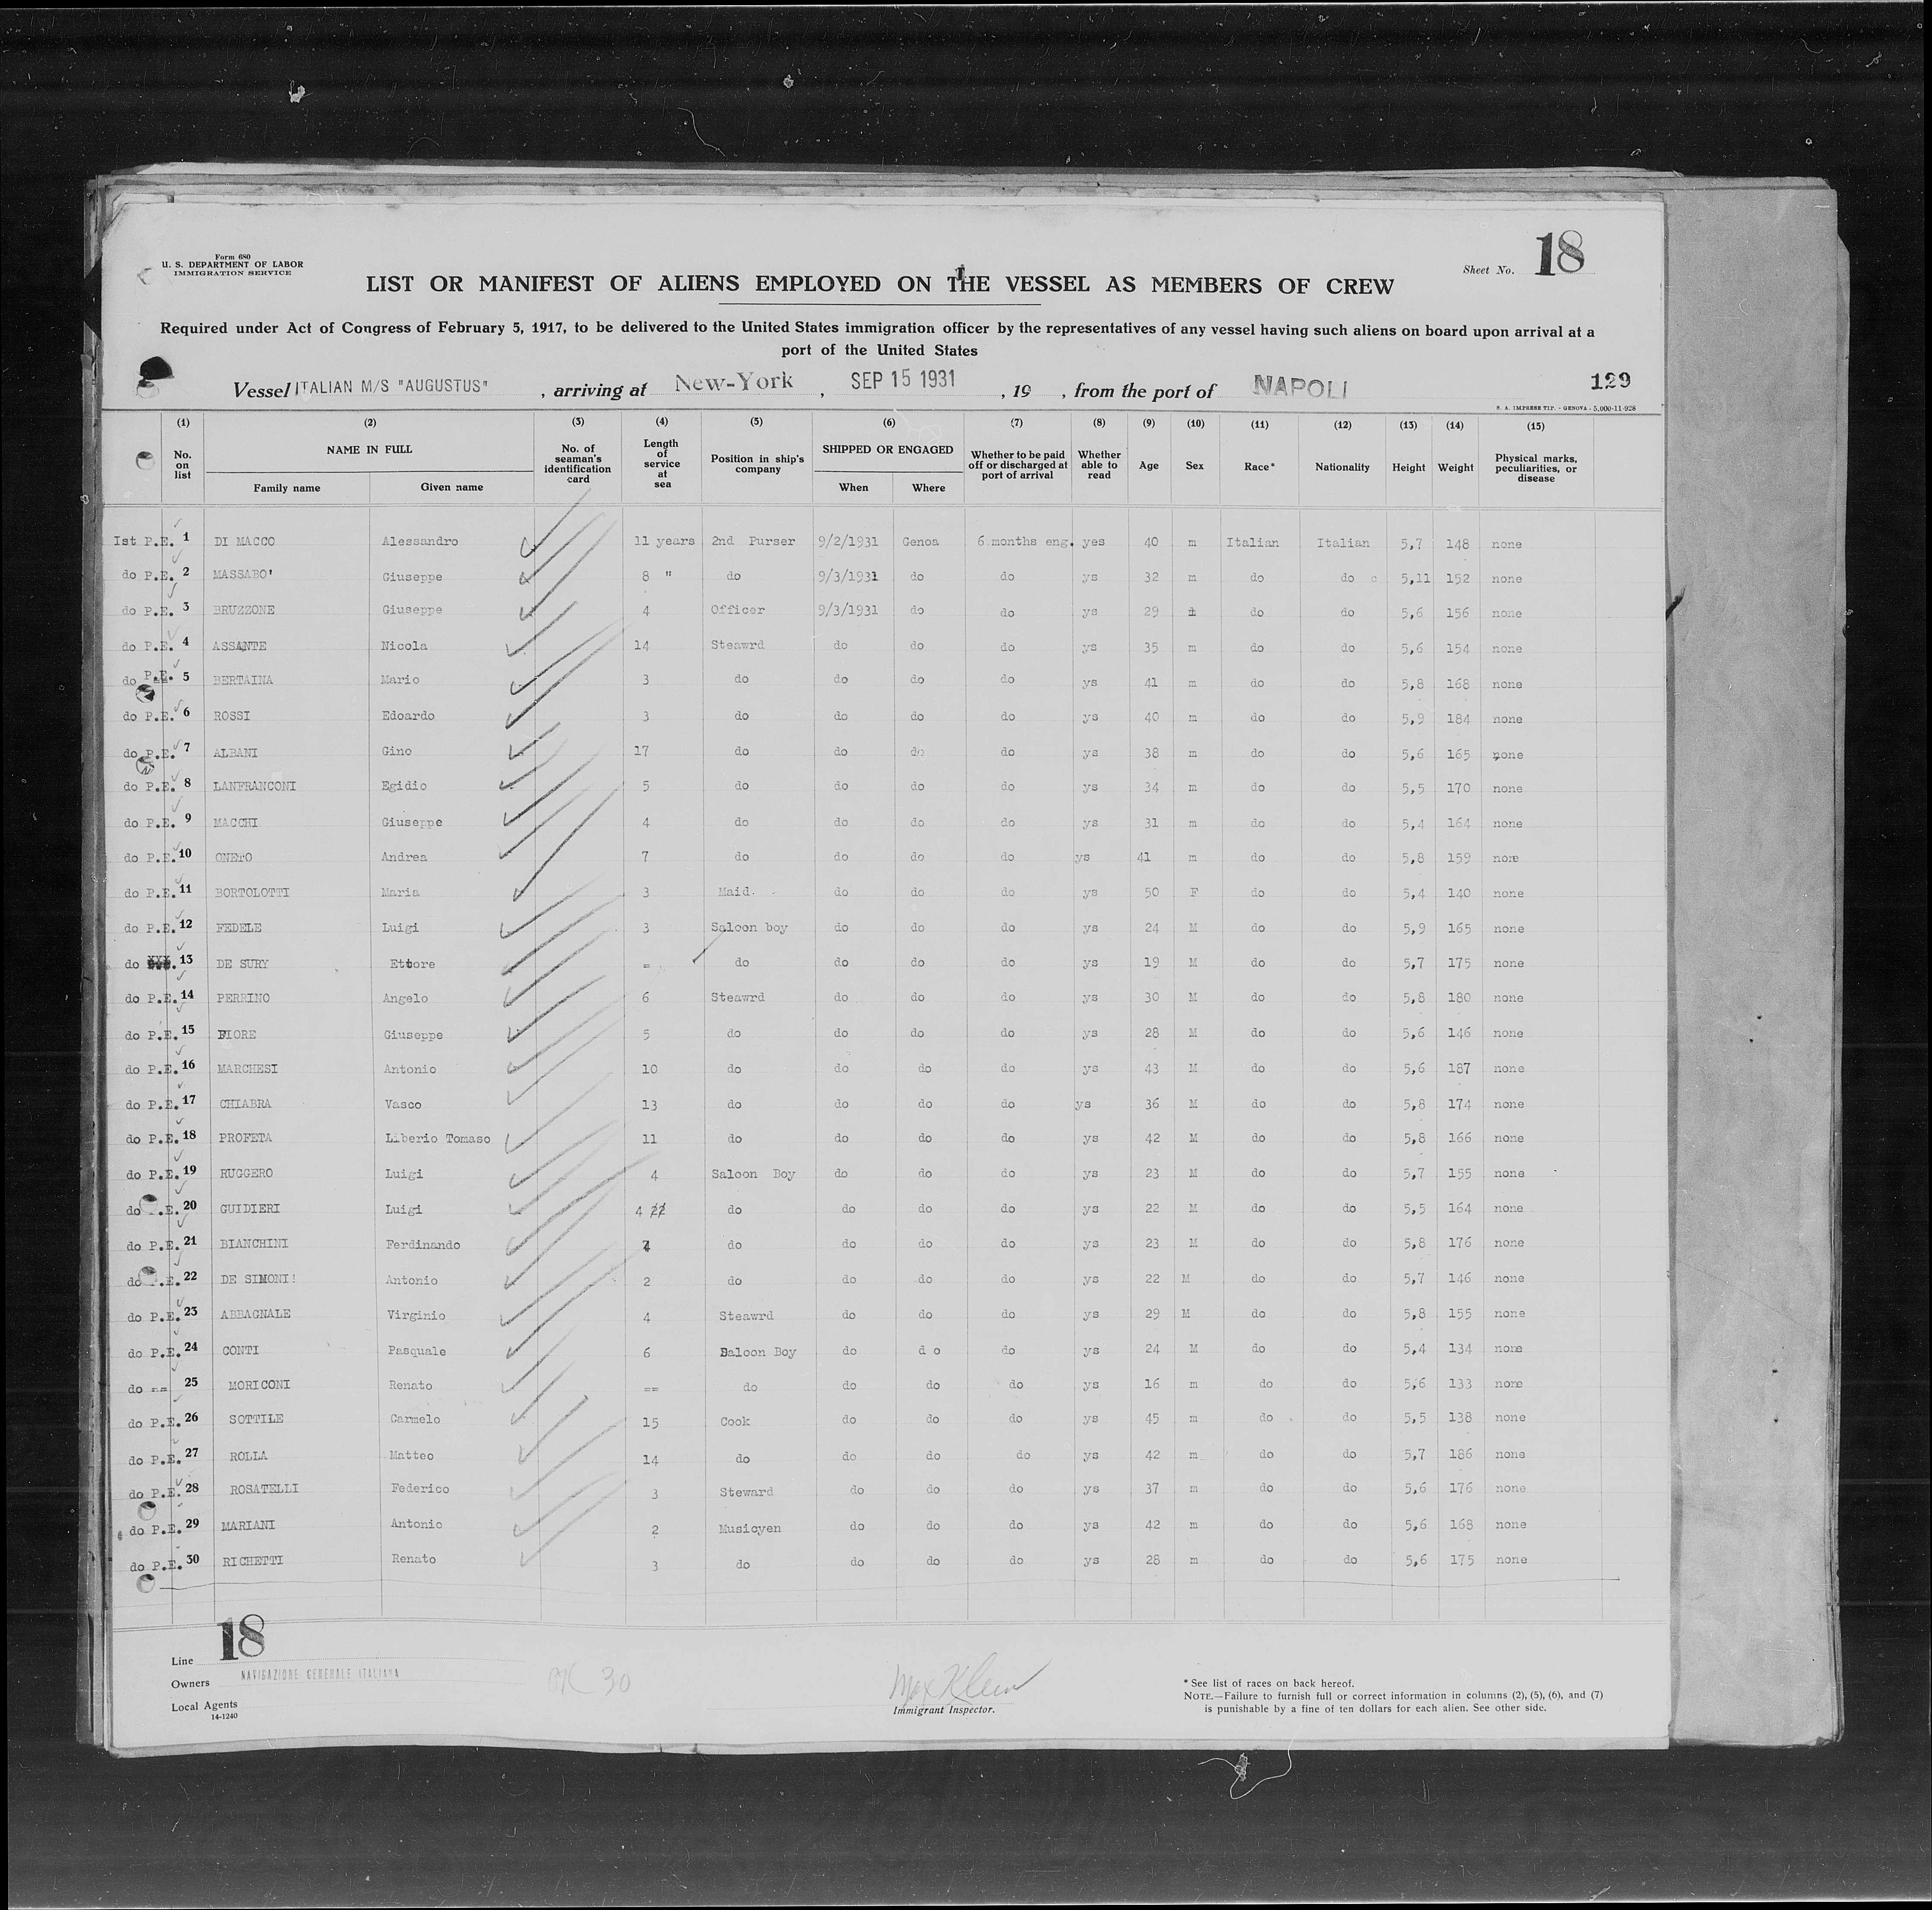 Form 680
U. S. DEPARTMENT OF LABOR
IMMIGRATION SERVICE
Sheet No. 18
LIST OR MANIFEST OF ALIENS EMPLOYED ON THE VESSEL AS MEMBERS OF CREW
Required under Act of Congress of February 5, 1917, to be delivered to the United States immigration officer by the representatives of any vessel having such aliens on board upon arrival at a
port of the United States
Vessel ITALIAN M/S "AUGUSTUS" , arriving at New-York , SEP 15 1931 , 19 , from the port of NAPOLI 129
S. A. IMPRESE TIP. - GENOVA - 5,000-11-928
(1) (2) (3) (4) (5) (6) (7) (8) (9) (10) (11) (12) (13) (14) (15)
No. on list NAME IN FULL Family name Given name No. of seaman's identification card Length of service at sea Position in ship's company SHIPPED OR ENGAGED When Where Whether to be paid off or discharged at port of arrival Whether able to read Age Sex Race* Nationality Height Weight Physical marks, peculiarities, or disease
Ist P.E. 1 DI MACCO Alessandro 11 years 2nd Purser 9/2/1931 Genoa 6 months eng. yes 40 m Italian Italian 5,7 148 none
do P.E. 2 MASSABO' Giuseppe 8 " do 9/3/1931 do do ys 32 m do do c 5,11 152 none
do P.E. 3 BRUZZONE Giuseppe 4 Officer 9/3/1931 do do ys 29 do do 5,6 156 none
do P.E. 4 ASSANTE Nicola 14 Steawrd do do do ys 35 m do do 5,6 154 none
do P.E. 5 BERTAINA Mario 3 do do do do ys 41 m do do 5,8 168 none
do P.E. 6 ROSSI Edoardo 3 do do do do ys 40 m do do 5,9 184 none
do P.E. 7 ALBANI Gino 17 do do do do ys 38 m do do 5,6 165 none
do P.E. 8 LANFRANCONI Egidio 5 do do do do ys 34 m do do 5,5 170 none
do P.E. 9 MACCHI Giuseppe 4 do do do do ys 31 m do do 5,4 164 none
do P.E. 10 ONETO Andrea 7 do do do do ys 41 m do do 5,8 159 none
do P.E. 11 BORTOLOTTI Maria 3 Maid. do do do ys 50 F do do 5,4 140 none
do P.E. 12 FEDELE Luigi 3 Saloon boy do do do ys 24 M do do 5,9 165 none
do XXX. 13 DE SURY Ettore = do do do do ys 19 M do do 5,7 175 none
do P.E. 14 PERRINO Angelo 6 Steawrd do do do ys 30 M do do 5,8 180 none
do P.E. 15 FIORE Giuseppe 5 do do do do ys 28 M do do 5,6 146 none
do P.E. 16 MARCHESI Antonio 10 do do do do ys 43 M do do 5,6 187 none
do P.E. 17 CHIABRA Vasco 13 do do do do ys 36 M do do 5,8 174 none
do P.E. 18 PROFETA Liberio Tomaso 11 do do do do ys 42 M do do 5,8 166 none
do P.E. 19 RUGGERO Luigi 4 Saloon Boy do do do ys 23 M do do 5,7 155 none
do .E. 20 GUIDIERI Luigi 4 22 do do do do ys 22 M do do 5,5 164 none
do P.E. 21 BIANCHINI Ferdinando do do do do ys 23 M do do 5,8 176 none
do .E. 22 DE SIMONI! Antonio 2 do do do do ys 22 M do do 5,7 146 none
do P.E. 23 ABBAGNALE Virginio 4 Steawrd do do do ys 29 M do do 5,8 155 none
do P.E. 24 CONTI Pasquale 6 Saloon Boy do d o do ys 24 M do do 5,4 134 none
do == 25 MORICONI Renato == do do do do ys 16 m do do 5,6 133 none
do P.E. 26 SOTTILE Carmelo 15 Cook do do do ys 45 m do do 5,5 138 none
do P.E. 27 ROLLA Matteo 14 do do do do ys 42 m do do 5,7 186 none
do P.E. 28 ROSATELLI Federico 3 Steward do do do ys 37 m do do 5,6 176 none
do P.E. 29 MARIANI Antonio 2 Musicyen do do do ys 42 m do do 5,6 168 none
do P.E. 30 RICHETTI Renato 3 do do do do ys 28 m do do 5,6 175 none
Line 18
Owners NAVIGAZIONE GENERALE ITALIANA
Local Agents
14-1240
OK 30
Max Klein
Immigrant Inspector.
* See list of races on back hereof.
NOTE.—Failure to furnish full or correct information in columns (2), (5), (6), and (7)
is punishable by a fine of ten dollars for each alien. See other side.